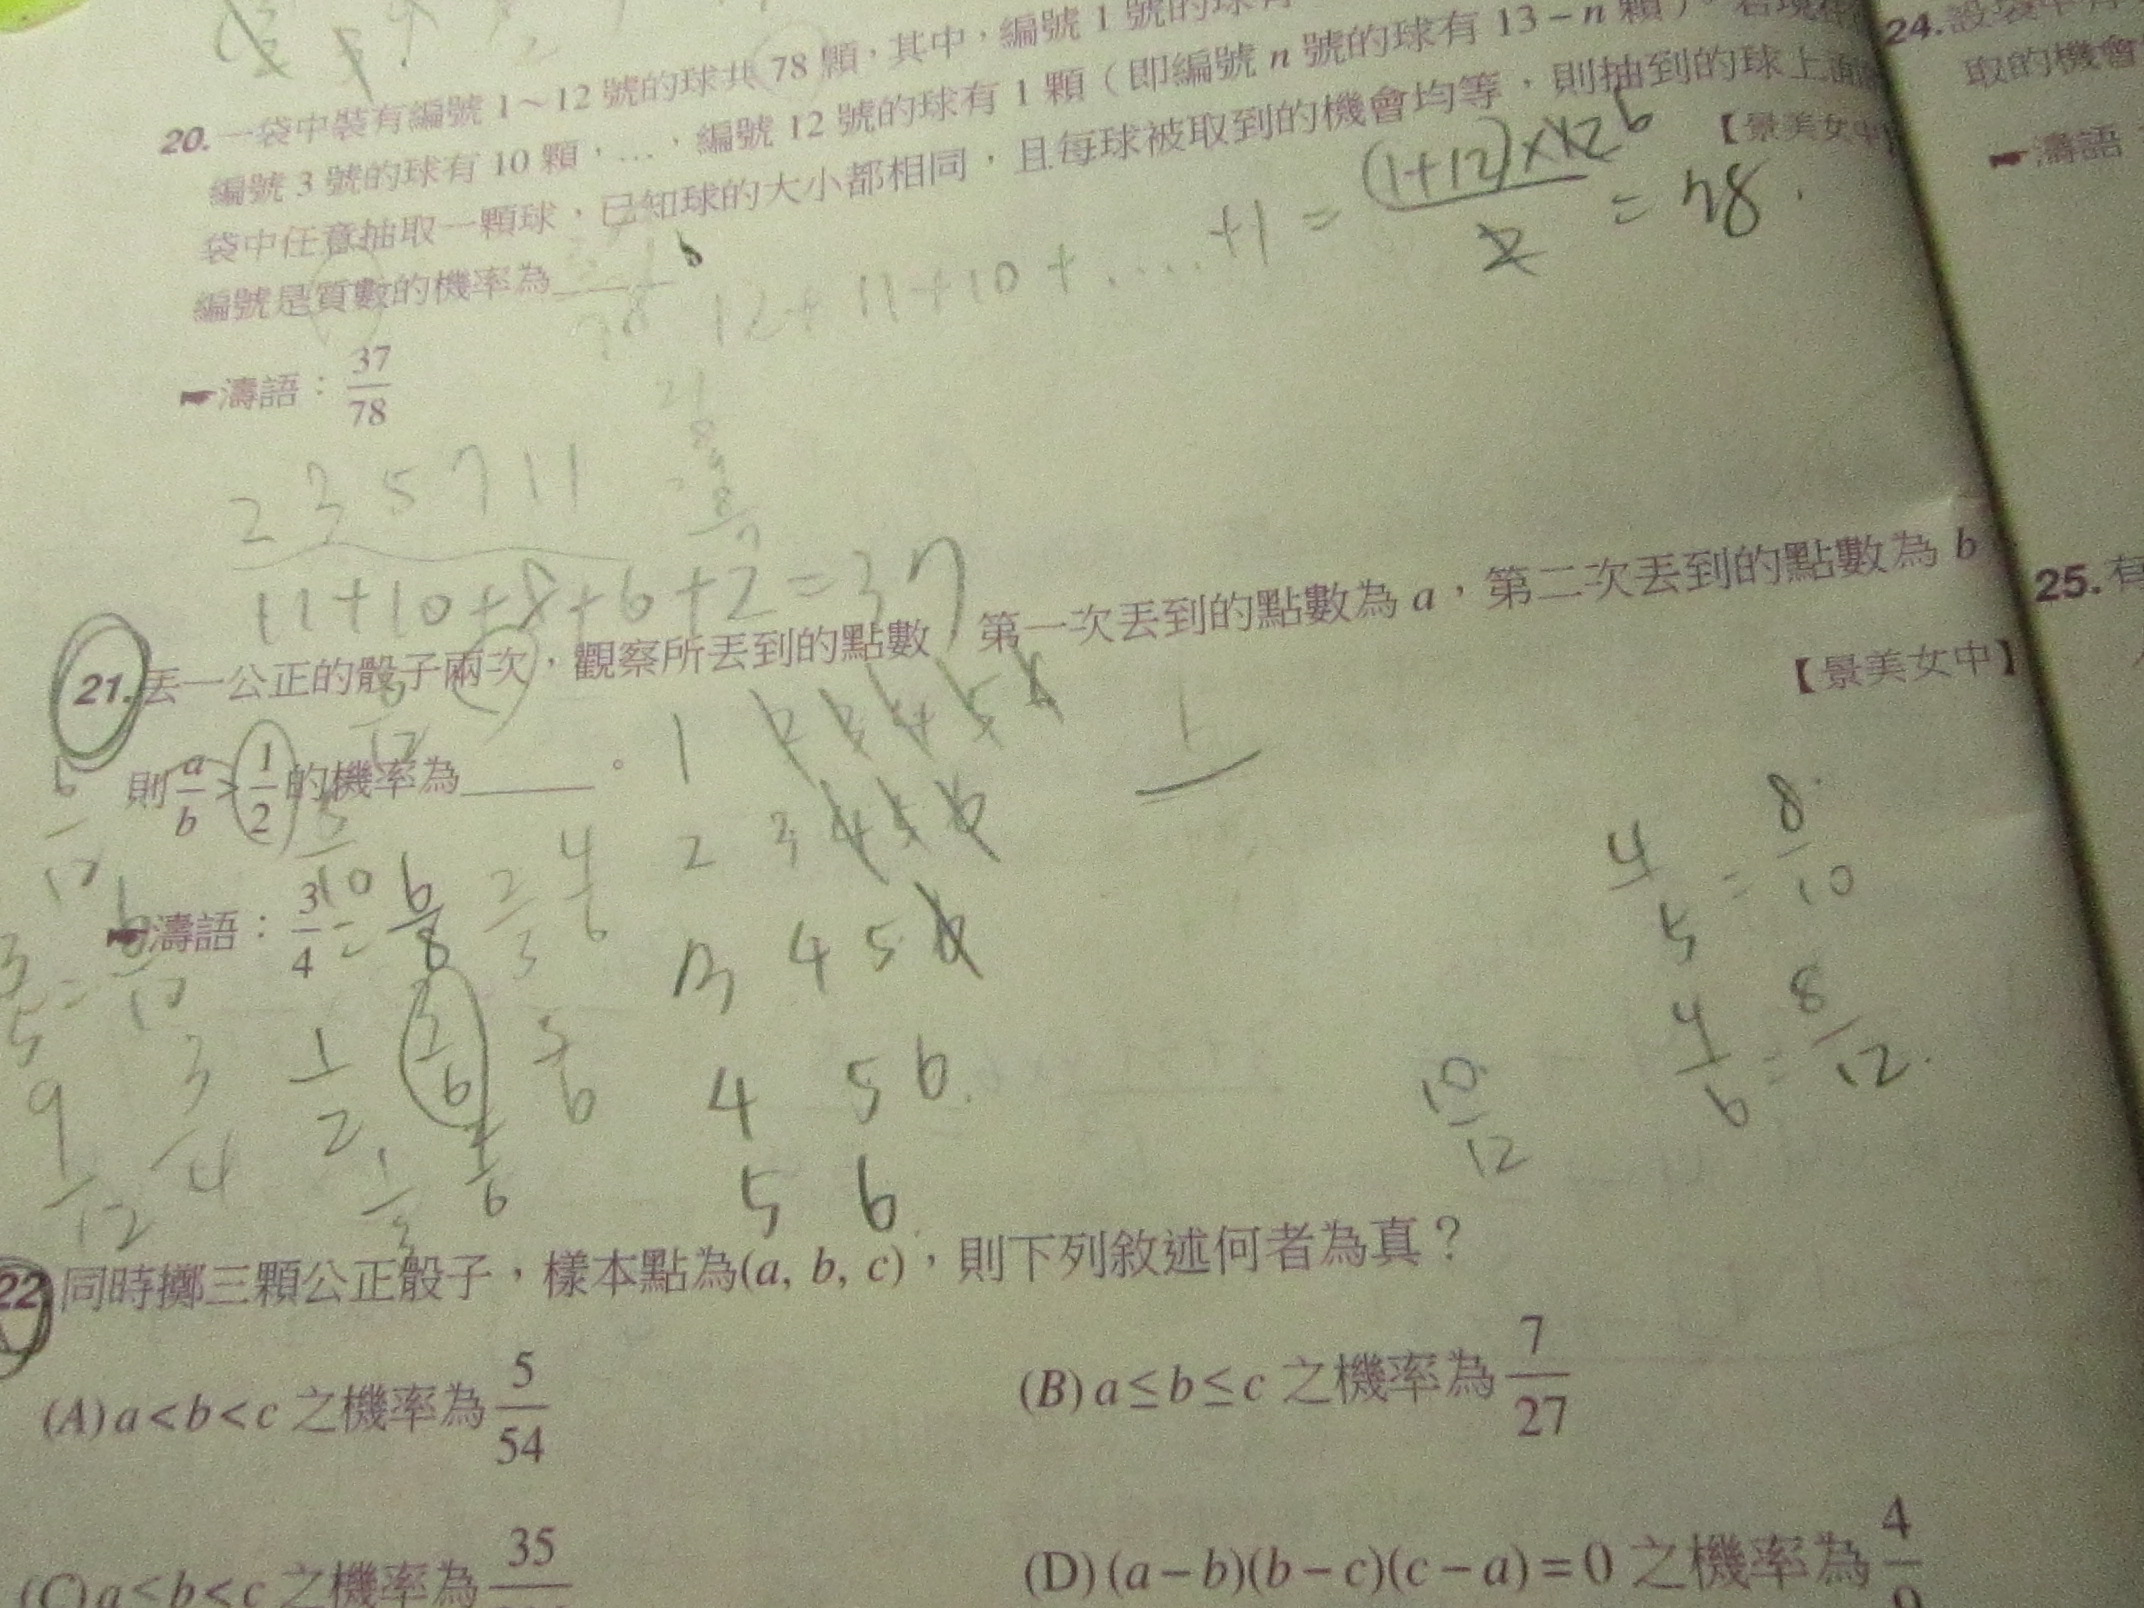 20.一袋中裝有編號 1~12 號的球共 78 顆,其中,編號 1 號的球有
編號 3 號的球有 10 顆,…,編號 12 號的球有 1 顆(即編號 n 號的球有 13-n 顆)。若現在
袋中任意抽取一顆球,已知球的大小都相同,且每球被取到的機會均等,則抽到的球上面
編號是質數的機率為
【景美女中
12+11+10+....+1=(1+12)×12/2=78.
6
濤語:37/78
2 3 5 7 11
11+10+8+6+2=37
21.丟一公正的骰子兩次,觀察所丟到的點數,第一次丟到的點數為 a,第二次丟到的點數為 b
則 a/b > 1/2 的機率為______。
【景美女中】
1 2 3 4 5 6
2 3 4 5 6
3 4 5 6
4 5 6.
5 6
濤語:3/4
= 6/8
2/3 4/6
4/5 = 8/10
4/6 = 8/12.
10/12
3/5 = 6/10
9/12 3/4 1/2 3/6 5/6
22.同時擲三顆公正骰子,樣本點為(a, b, c),則下列敘述何者為真?
(A)a<b<c 之機率為 5/54
(B)a≤b≤c 之機率為 7/27
(C)a≤b<c 之機率為 35
(D)(a-b)(b-c)(c-a)=0 之機率為 4/9
24.設袋中有
取的機會
濤語
25.有